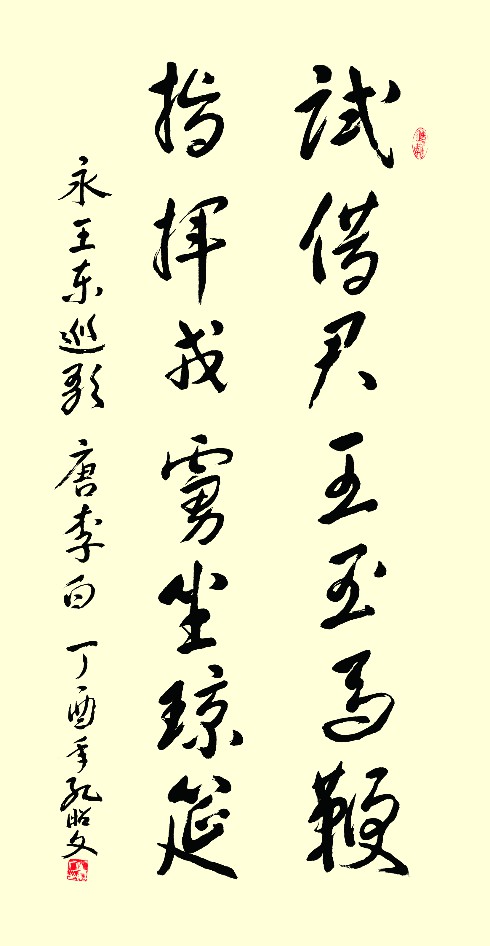 试借君王玉马鞭
指揮戎虜坐琼筵
永王东巡歌 唐李白 丁酉年孔昭文